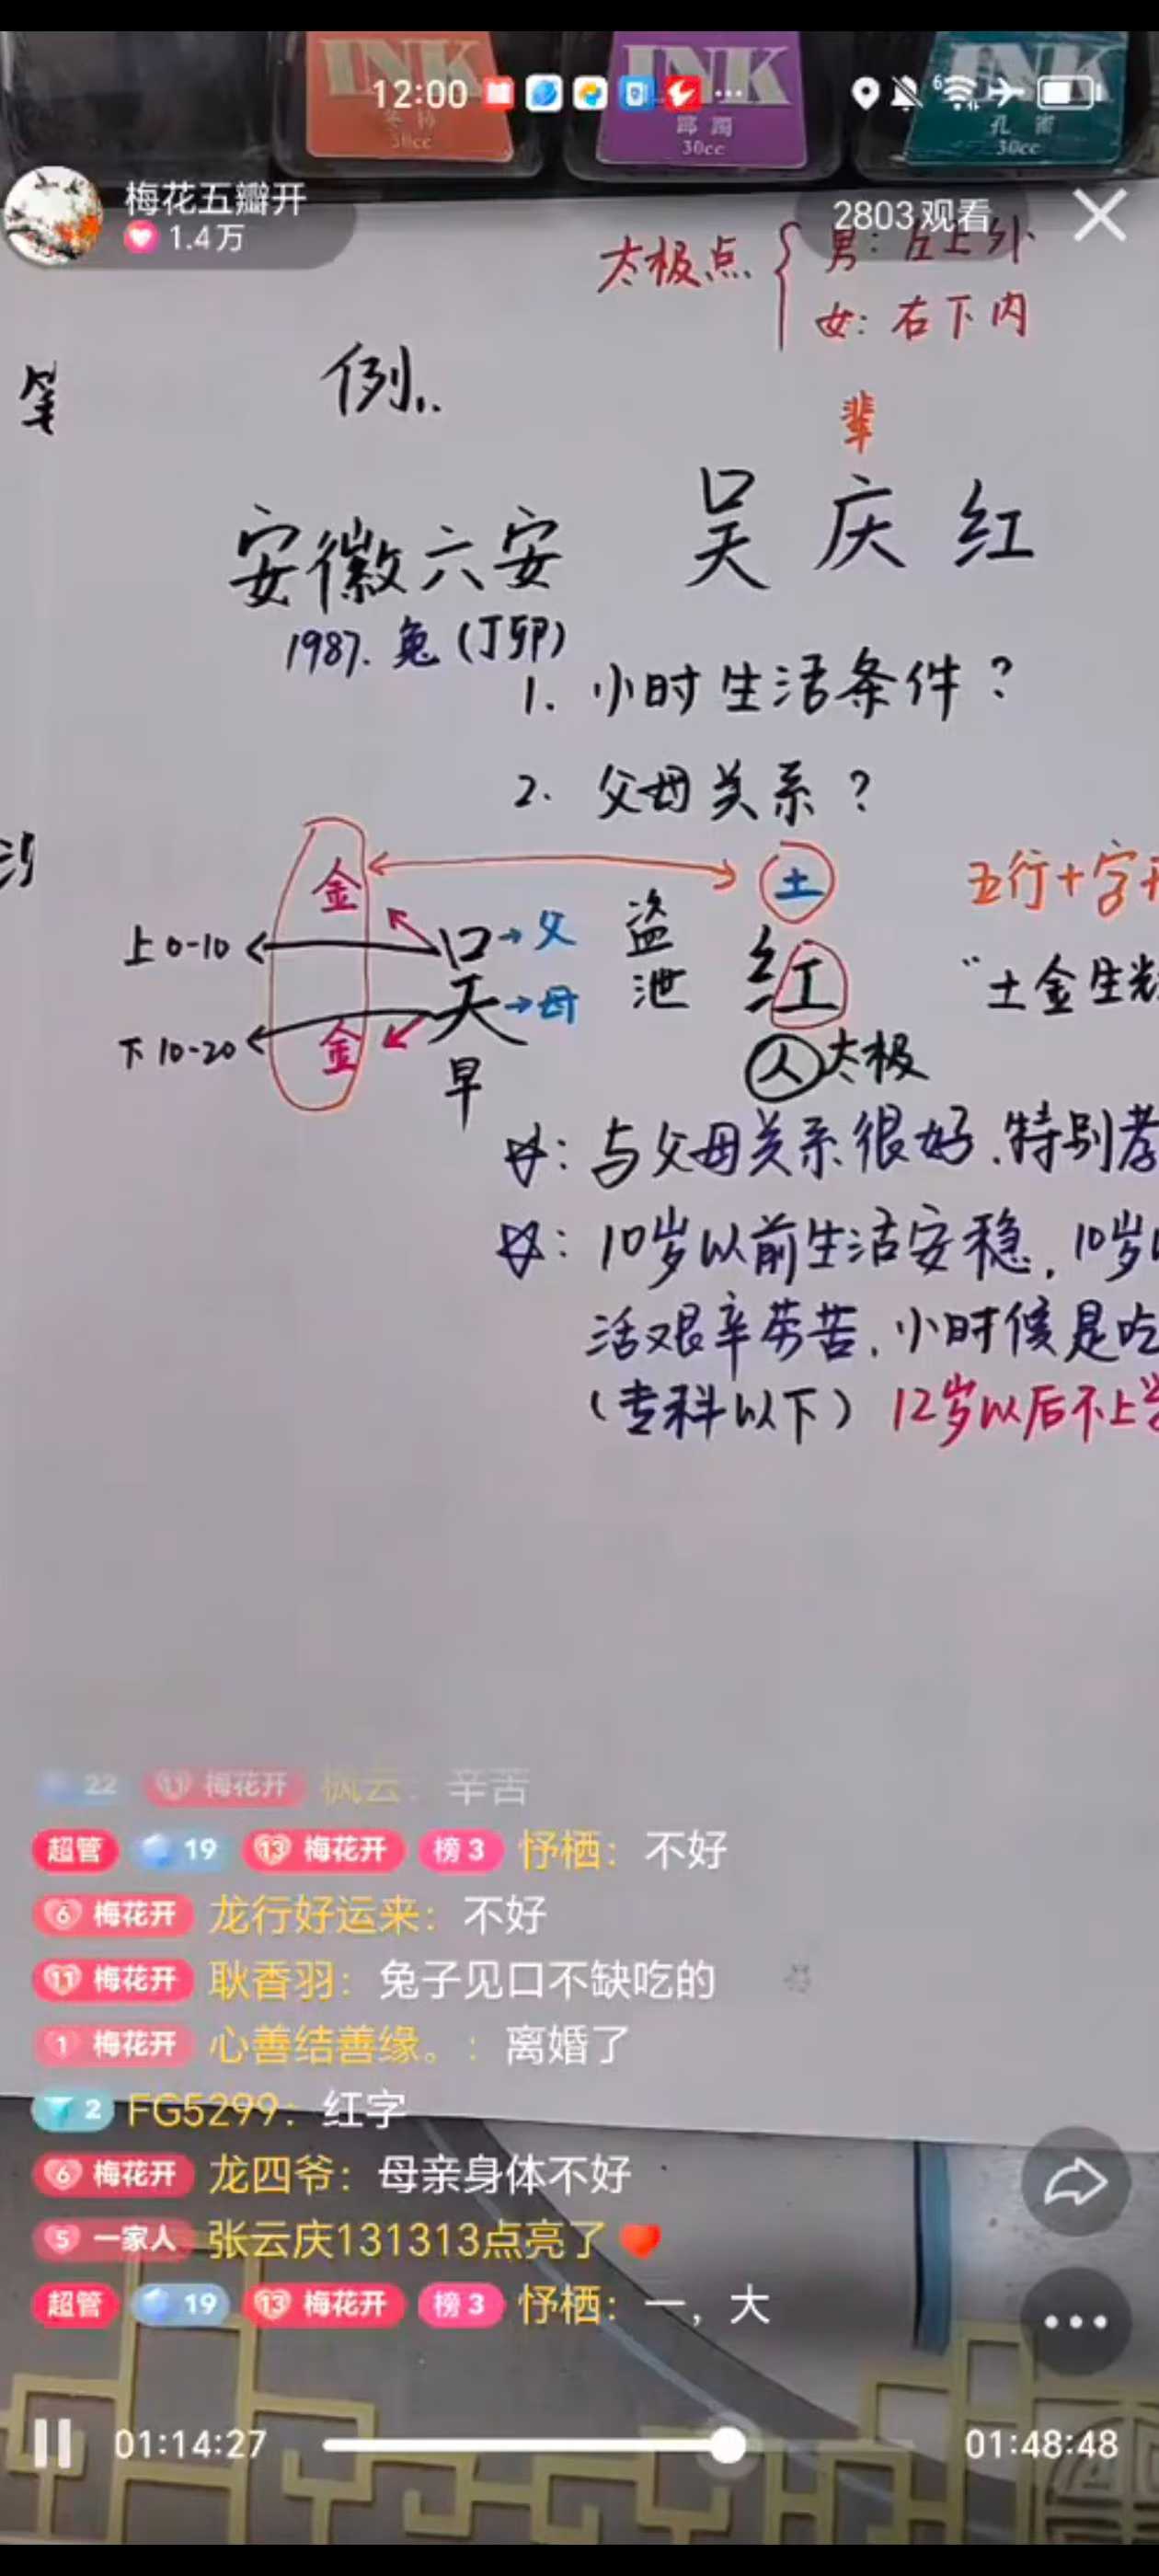 INK INK INK
12:00
30cc 30cc 30cc
梅花五瓣开
1.4万
2803观看
太极点
男:左上外
女:右下内
笔
例1.
辈
安徽六安 吴庆红
1987.兔(丁卯)
1. 小时生活条件?
2. 父母关系?
金 土 五行+字
上0-10 口→父 盗 红
下10-20 金 天→母 泄 "土金生
早 人 太极
与父母关系很好.特别孝
10岁以前生活安稳,10岁
活艰辛劳苦,小时候是吃
(专科以下) 12岁以后不上学
22 11 梅花开 枫云: 辛苦
超管 19 13 梅花开 榜3 抒栖: 不好
6 梅花开 龙行好运来: 不好
11 梅花开 耿香羽: 兔子见口不缺吃的
1 梅花开 心善结善缘。: 离婚了
2 FG5299: 红字
6 梅花开 龙四爷: 母亲身体不好
5 一家人 张云庆131313点亮了
超管 19 13 梅花开 榜3 抒栖: 一，大
01:14:27 01:48:48